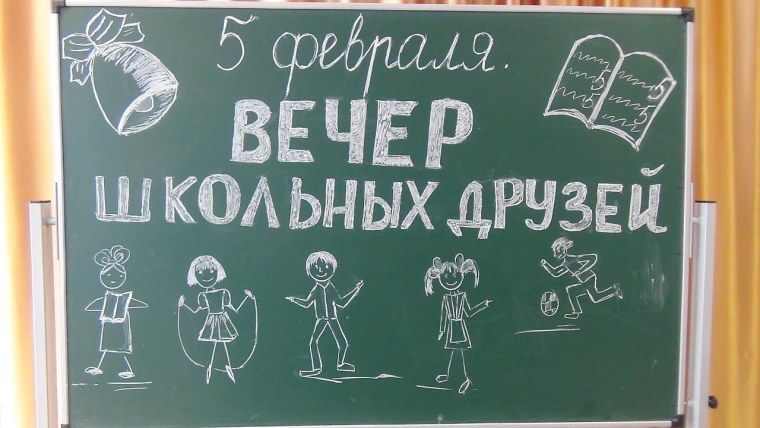 5 февраля.
ВЕЧЕР
ШКОЛЬНЫХ ДРУЗЕЙ
5
5
5